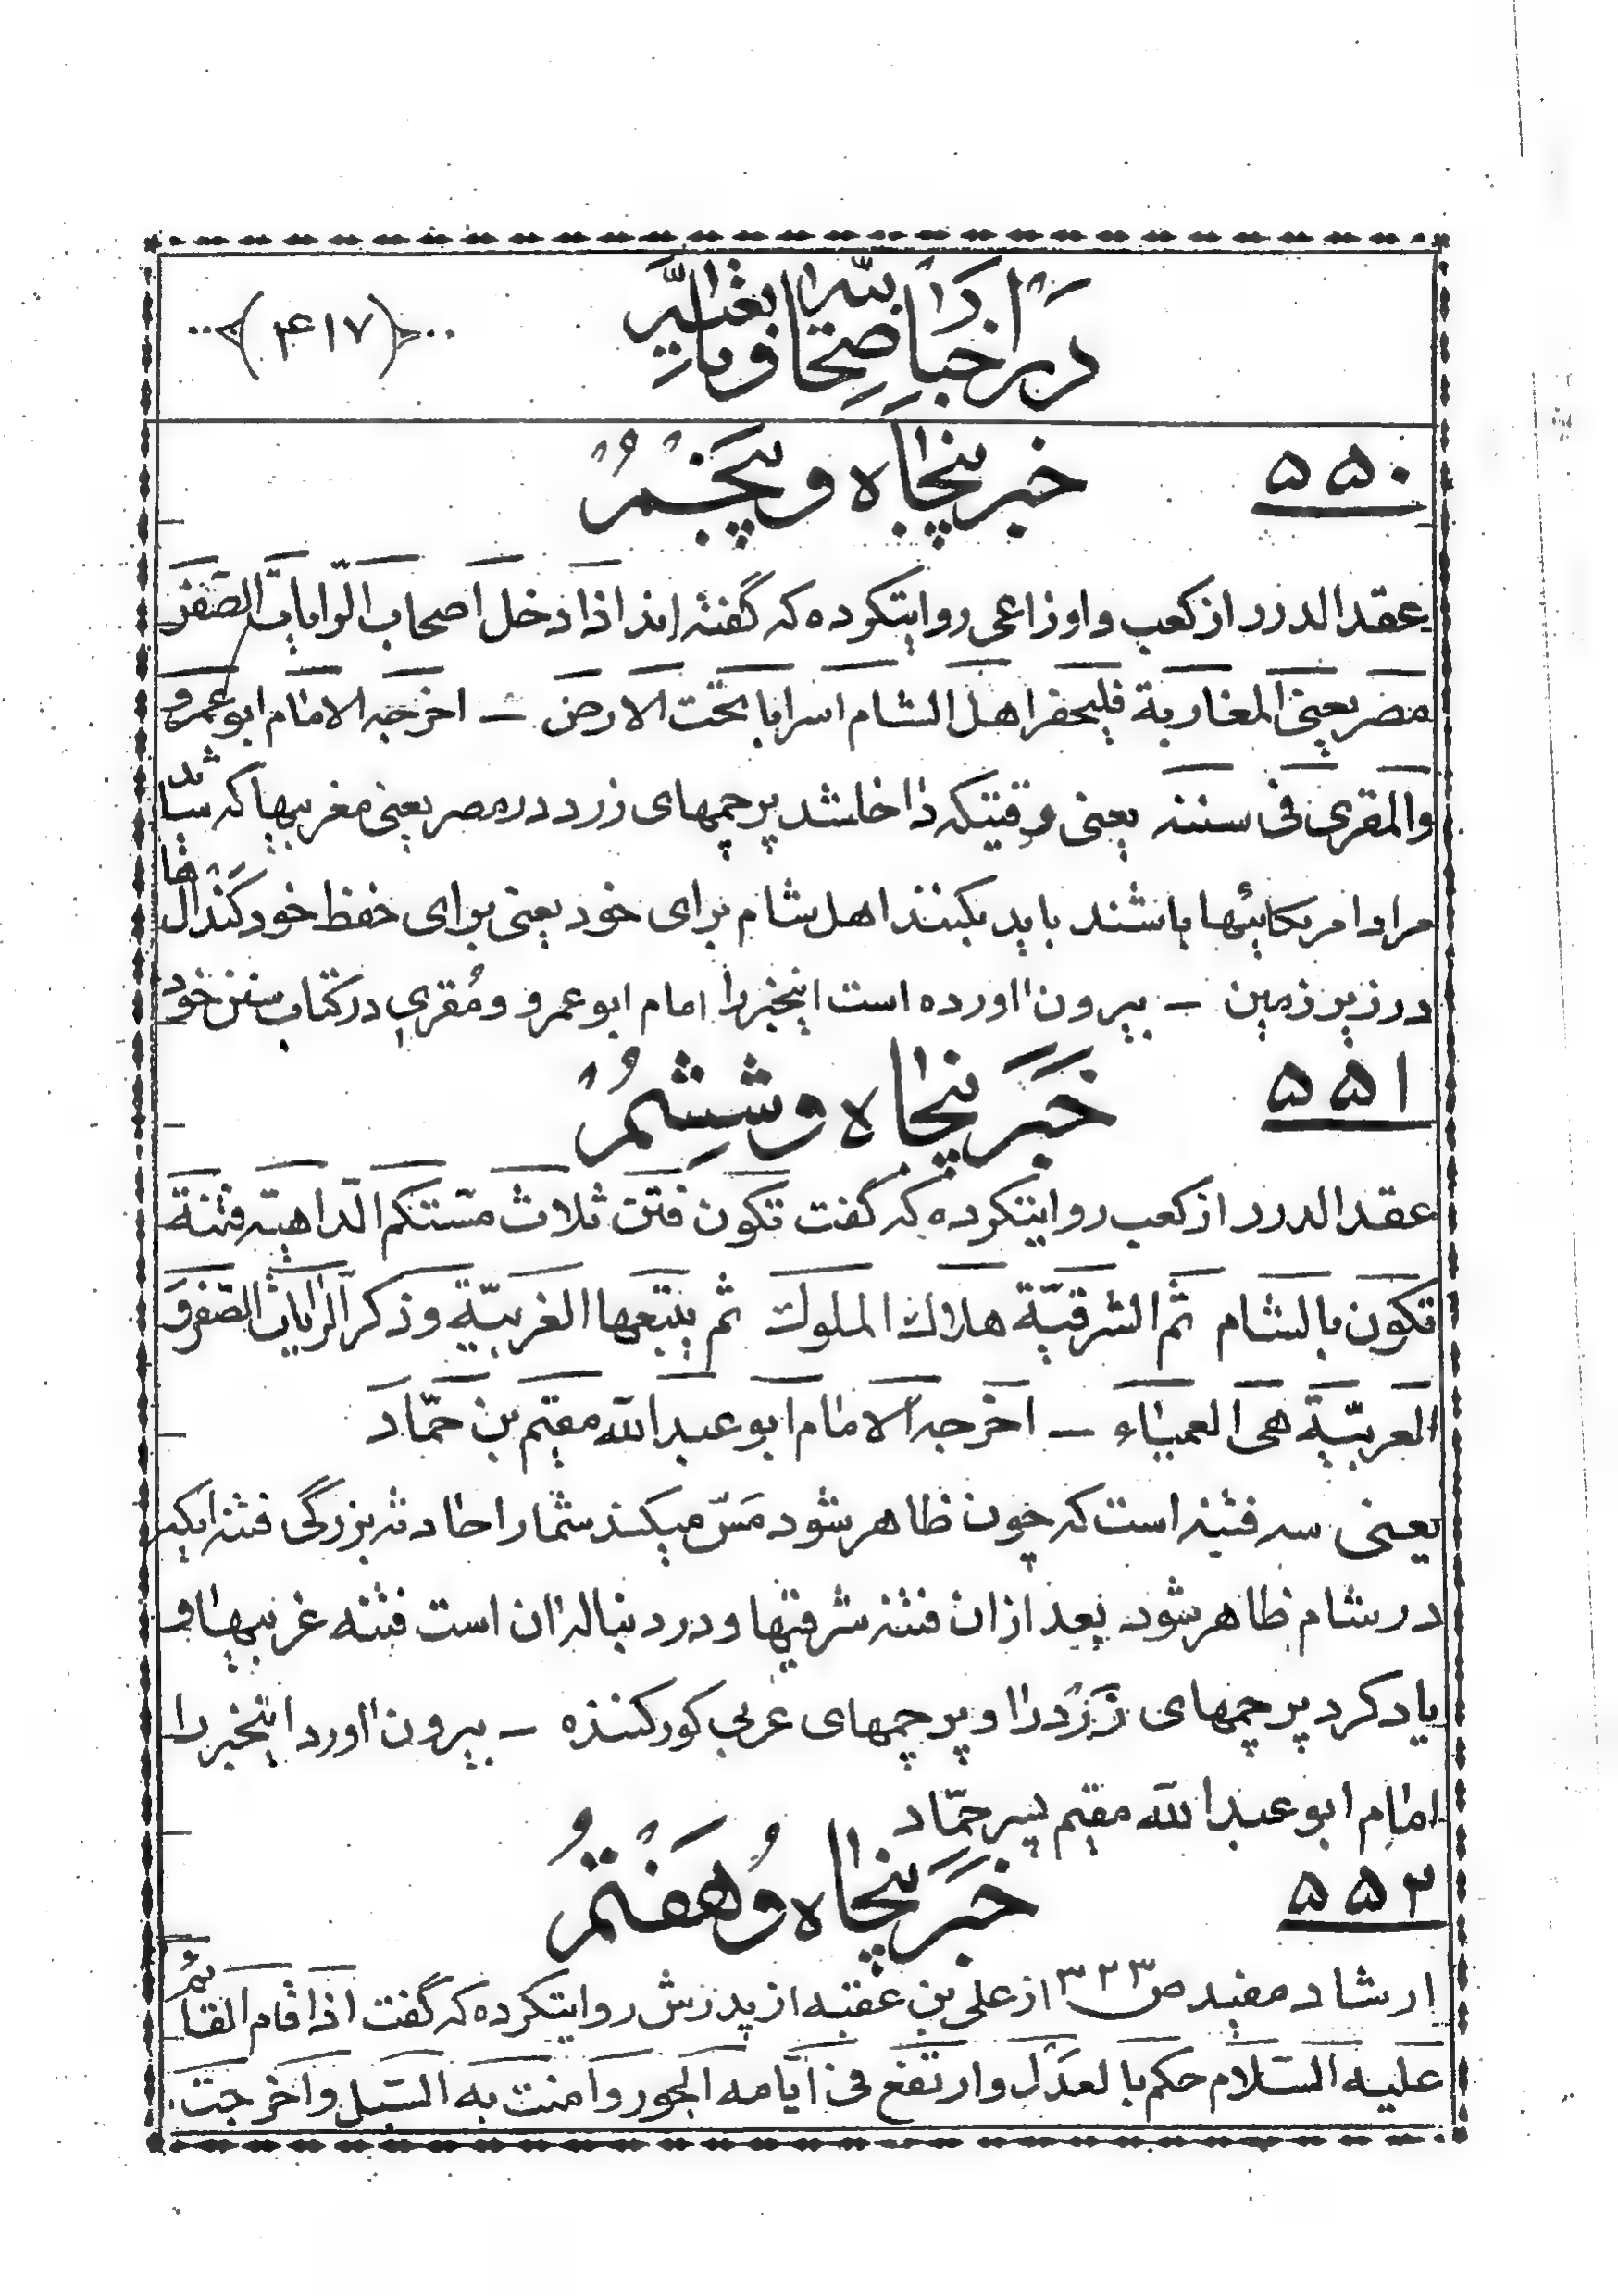 در اخبار صحابه و تابعین
(۴۱۷)
۵۵۰
خبر پنجاه و پنجم
عقد الدرر از کعب و اوزاعی روایتکرده که گفته اند اذا دخل اصحاب الرّایات الصّفر
مصر یعنی المغاربة فلیحفر اهل الشام اسرابا تحت الارض – اخرجه الامام ابو عمرو
والمقری فی سننه یعنی وقتیکه داخلشد پرچمهای زرد در مصر یعنی مغربیها که شاید
مراد امریکائیها باشند باید بکنند اهل شام برای خود یعنی برای حفظ خود کندالها
در زیر زمین – بیرون اورده است اینخبر را امام ابو عمرو و مُقری در کتاب سنن خود
۵۵۱
خبر پنجاه و ششم
عقد الدرر از کعب روایتکرده که گفت تکون فتن ثلاث مستکم الداهیّه فتنة
تکون بالشام ثم الشرقیّة هلاك الملوك ثم یتبعها الغربیّة و ذکر الرّایات الصّفر و
العربیّة هی العمیاء – اخرجه الامام ابو عبد الله مقیم بن حمّاد
یعنی سه فتنه است که چون ظاهر شود مسّ میکند شما را حادثه بزرگی فتنه ایکه
در شام ظاهر شود بعد از ان فتنه شرقیها و در دنباله ان است فتنه غربیها و
یاد کرد پرچمهای زَرْد را و پرچمهای عربی کور کننده – بیرون اورد اینخبر را
امام ابو عبد الله مقیم پسر حمّاد
۵۵۲
خبر پنجاه و هفتم
ارشاد مفید ص ۳۲۳ از علی بن عقبه از پدرش روایتکرده که گفت اذا قام القائم
علیه السّلام حکم بالعدل وارتفع فی ایّامه الجور وامنت به السّبل واخرجت